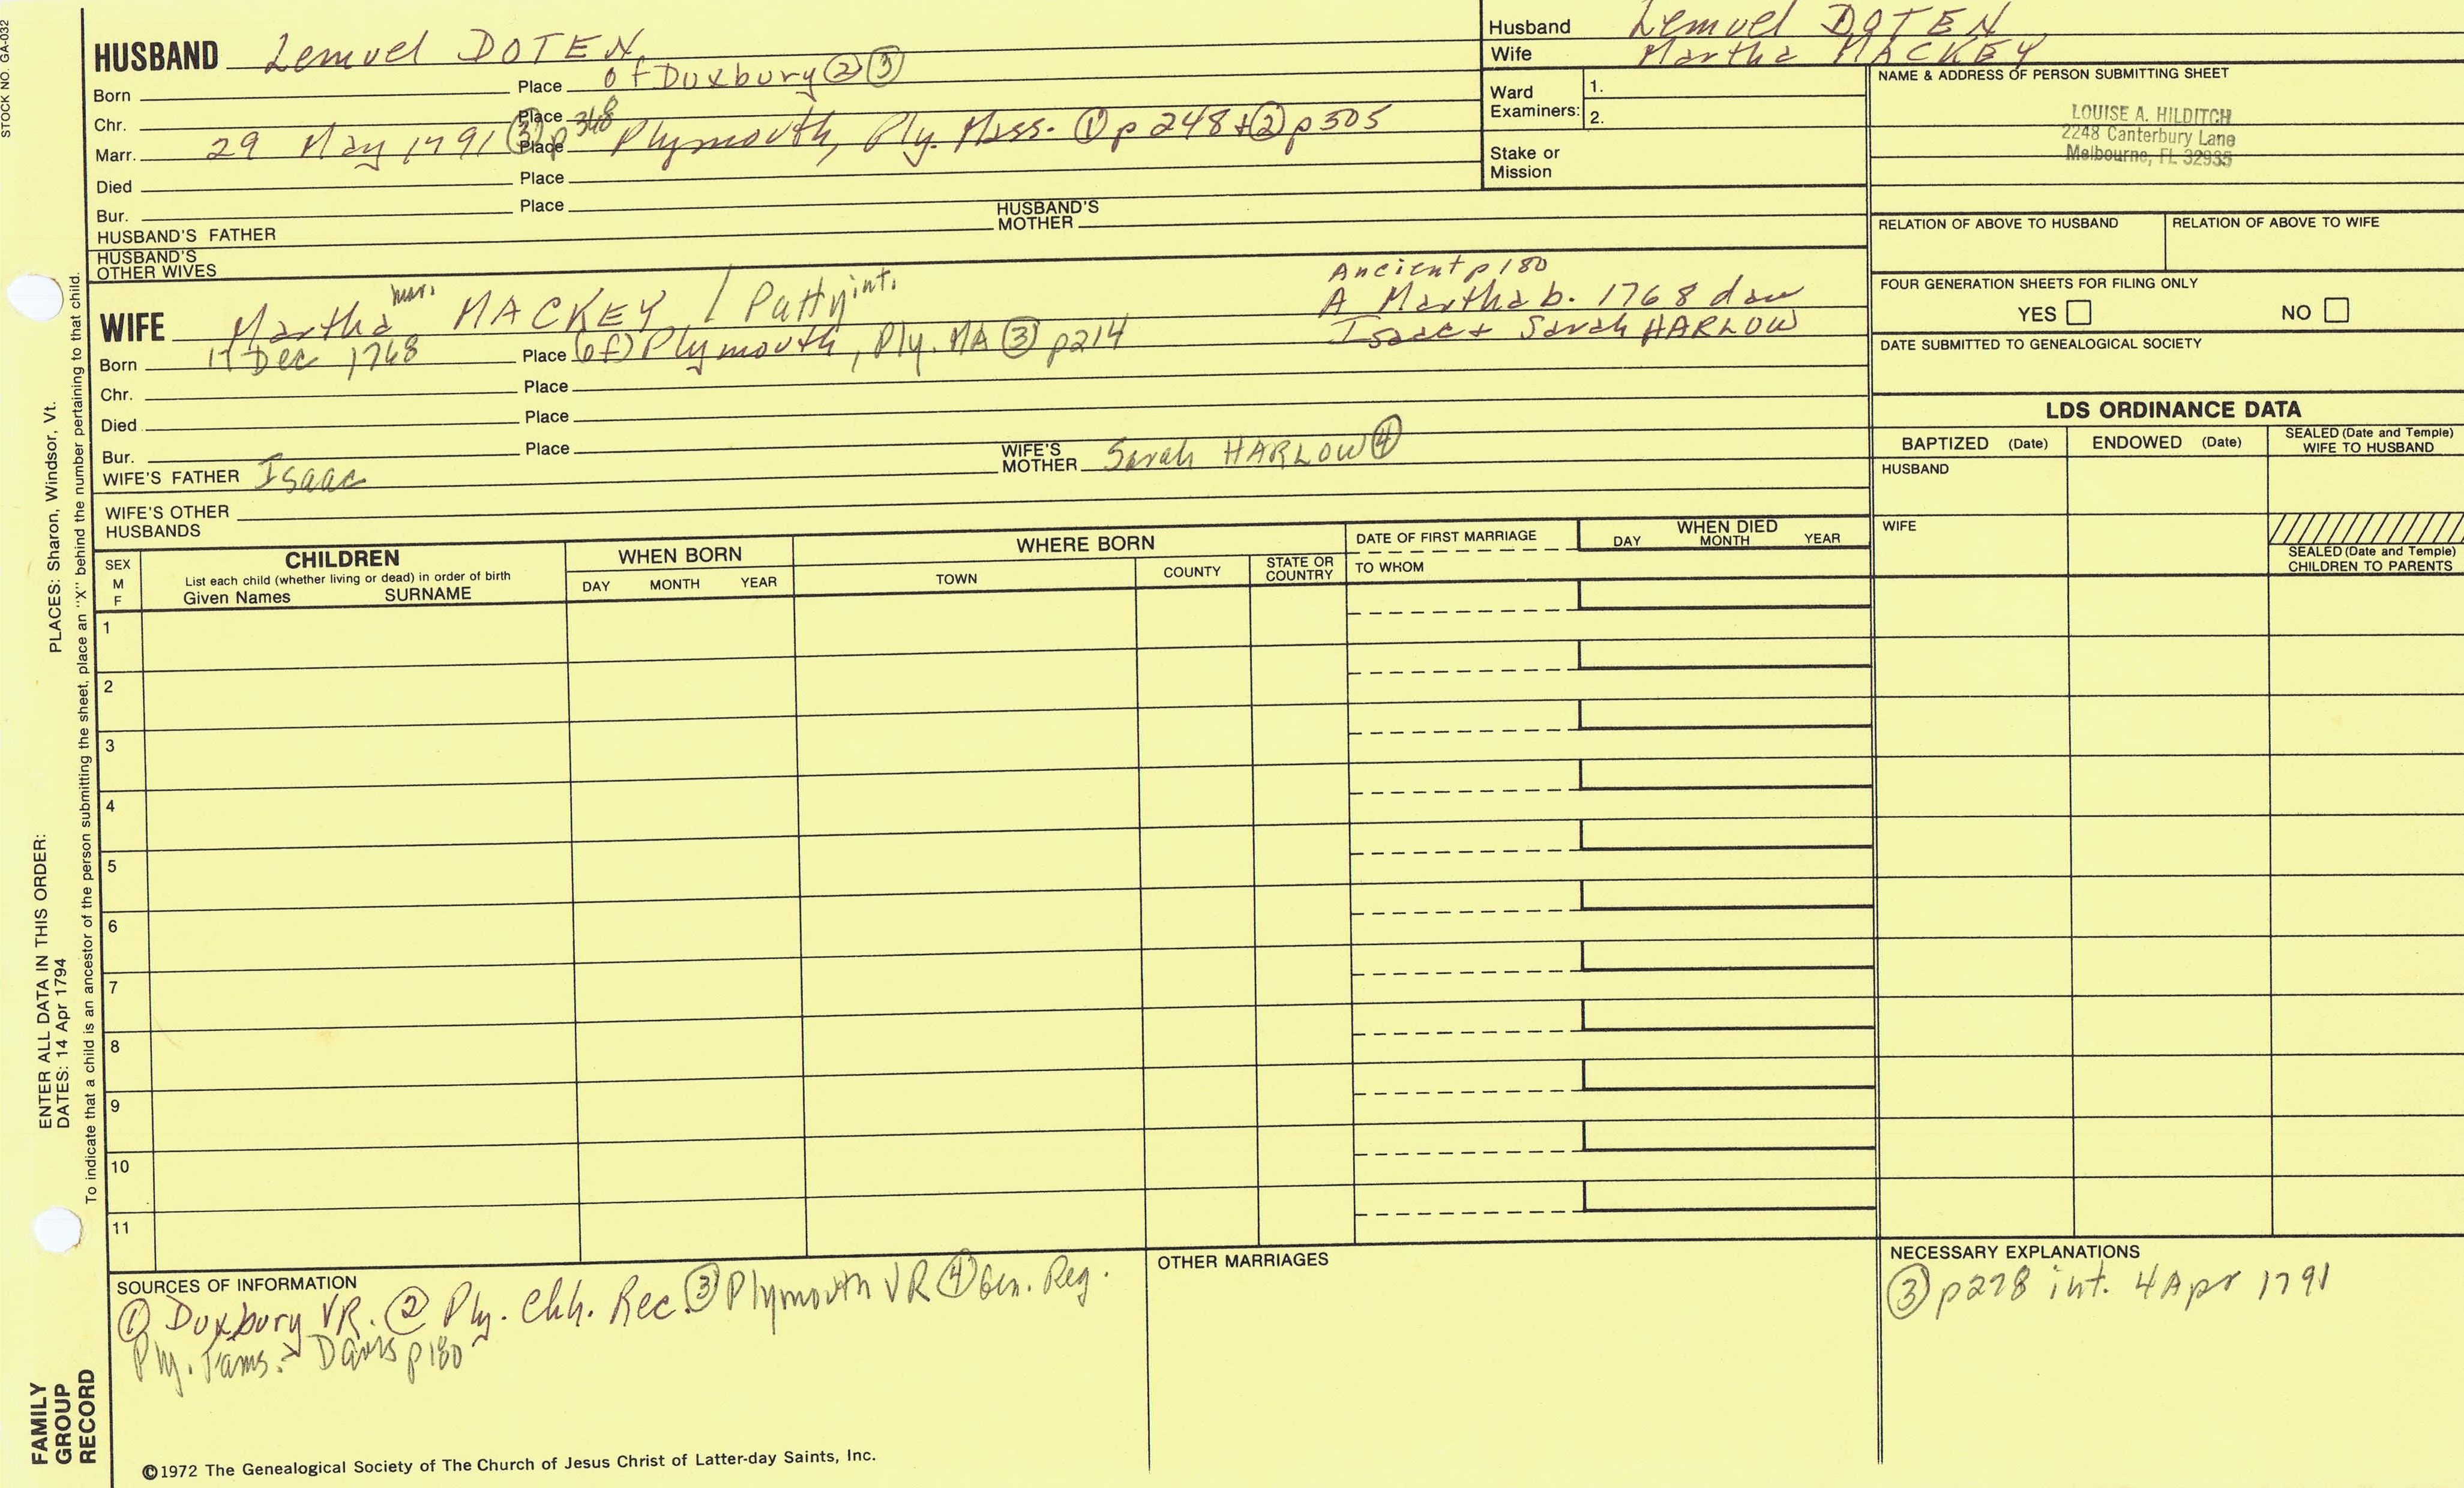 STOCK NO. GA-032
HUSBAND Lemuel DOTEN
Born Place of Duxbury ② ③
Chr. Place
Marr. 29 May 1791 ③ p 348 Place Plymouth, Ply. Mass. ① p 248 + ② p 305
Died Place
Bur. Place
HUSBAND'S FATHER HUSBAND'S MOTHER
HUSBAND'S OTHER WIVES
Husband Lemuel DOTEN
Wife Martha MACKEY
Ward Examiners: 1.
2.
Stake or Mission
NAME & ADDRESS OF PERSON SUBMITTING SHEET
LOUISE A. HILDITCH
2248 Canterbury Lane
Melbourne, FL 32935
RELATION OF ABOVE TO HUSBAND RELATION OF ABOVE TO WIFE
FOUR GENERATION SHEETS FOR FILING ONLY
YES NO
DATE SUBMITTED TO GENEALOGICAL SOCIETY
WIFE Martha mar. MACKEY / Patty int.
Ancient p 180
A Martha b. 1768 dau
Isaac + Sarah HARLOW
Born 17 Dec 1768 Place (of) Plymouth, Ply. MA ③ p214
Chr. Place
Died Place
Bur. Place
WIFE'S FATHER Isaac WIFE'S MOTHER Sarah HARLOW ④
WIFE'S OTHER HUSBANDS
LDS ORDINANCE DATA
BAPTIZED (Date) ENDOWED (Date) SEALED (Date and Temple) WIFE TO HUSBAND
HUSBAND
WIFE
SEALED (Date and Temple) CHILDREN TO PARENTS
SEX M F
CHILDREN
List each child (whether living or dead) in order of birth
Given Names SURNAME
WHEN BORN
DAY MONTH YEAR
WHERE BORN
TOWN COUNTY STATE OR COUNTRY
DATE OF FIRST MARRIAGE
TO WHOM
WHEN DIED
DAY MONTH YEAR
1
2
3
4
5
6
7
8
9
10
11
SOURCES OF INFORMATION
① Duxbury VR. ② Ply. Chh. Rec. ③ Plymouth VR ④ Gen. Reg.
Ply. Fams. Davis p180
OTHER MARRIAGES
NECESSARY EXPLANATIONS
③ p278 int. 4 Apr 1791
©1972 The Genealogical Society of The Church of Jesus Christ of Latter-day Saints, Inc.
FAMILY GROUP RECORD
ENTER ALL DATA IN THIS ORDER:
DATES: 14 Apr 1794
PLACES: Sharon, Windsor, Vt.
To indicate that a child is an ancestor of the person submitting the sheet, place an "X" behind the number pertaining to that child.